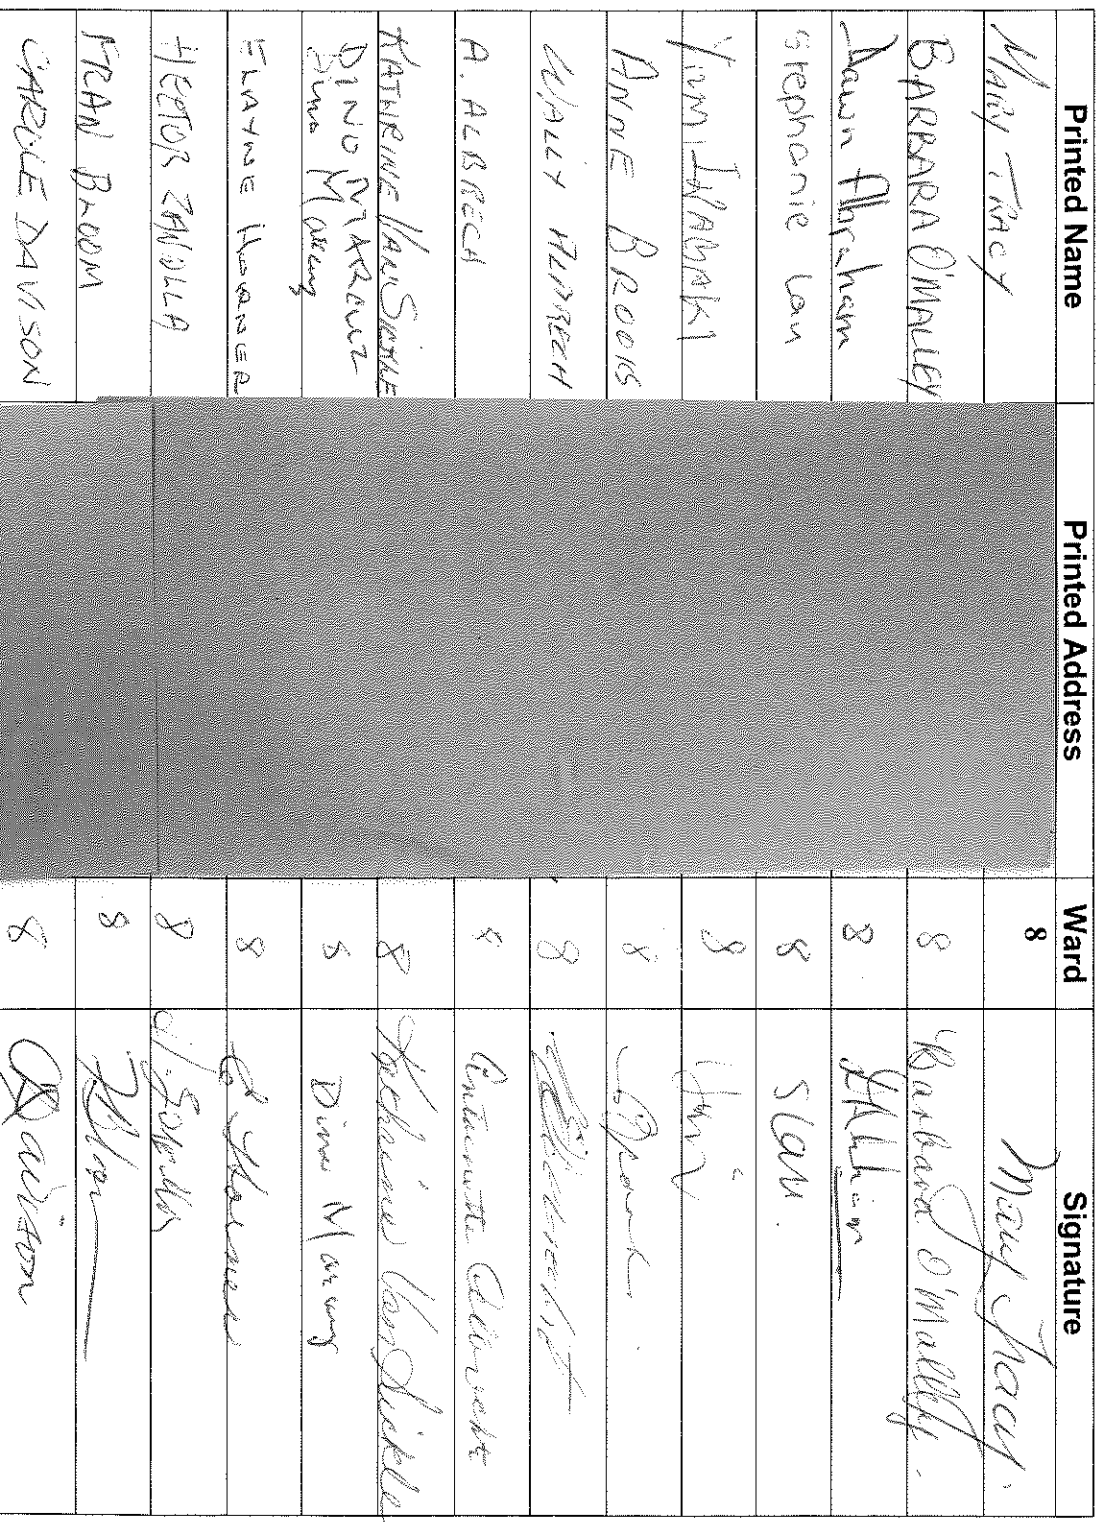 Printed Name Printed Address Ward Signature
MARY TRACY 8 Mary Tracy.
BARBARA O'MALLEY 8 Barbara O'Malley.
Dawn Abraham 8
Stephanie Lau 8 SLau.
YUMI INABAKI 8 Yumi
ANNE BROOKS 8
WALLY ALBRECH 8
A. ALBRECH 8 Antoinette Albrecht
KATHRINE VANSICKLE 8 Kathrine VanSickle
DINO
Dino 8 Dino
ELAYNE HORNER 8 E Horner
HECTOR ZANOLLA 8
FRAN BLOOM 8
CAROLE DAVISON 8 C Davison